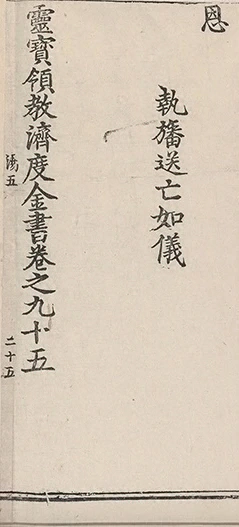 恩
執旛送亡如儀
靈寶領教濟度金書卷之九十五
湯五
二十五